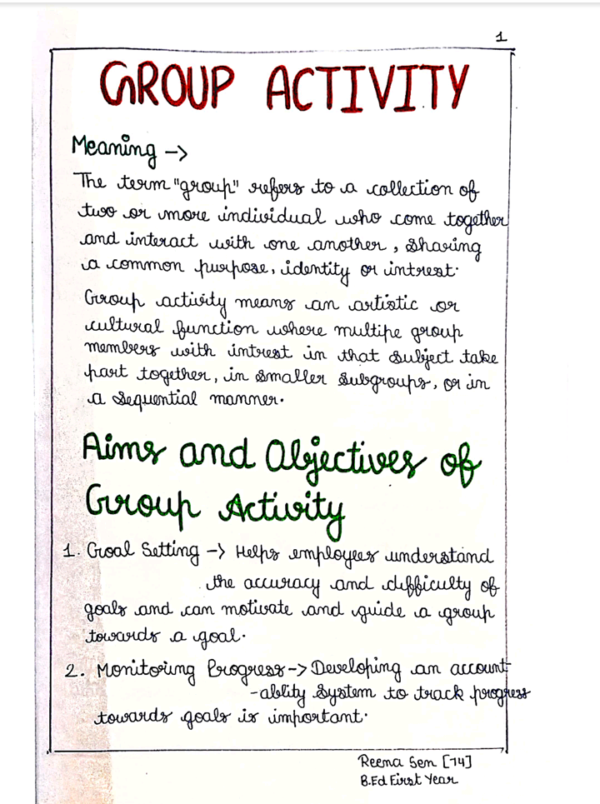 1
GROUP ACTIVITY
Meaning ->
The term "group" refers to a collection of
two or more individual who come together
and interact with one another, sharing
a common purpose, identity or intrest.
Group activity means an artistic or
cultural function where multipe group
members with intrest in that subject take
part together, in smaller subgroups, or in
a sequential manner.
Aims and Objectives of
Group Activity
1. Goal Setting -> Helps employees understand
the accuracy and difficulty of
goals and can motivate and guide a group
towards a goal.
2. Monitoring Progress -> Developing an account
-ablity System to track progress
towards goals is important.
Reema Sen [74]
B.Ed First Year